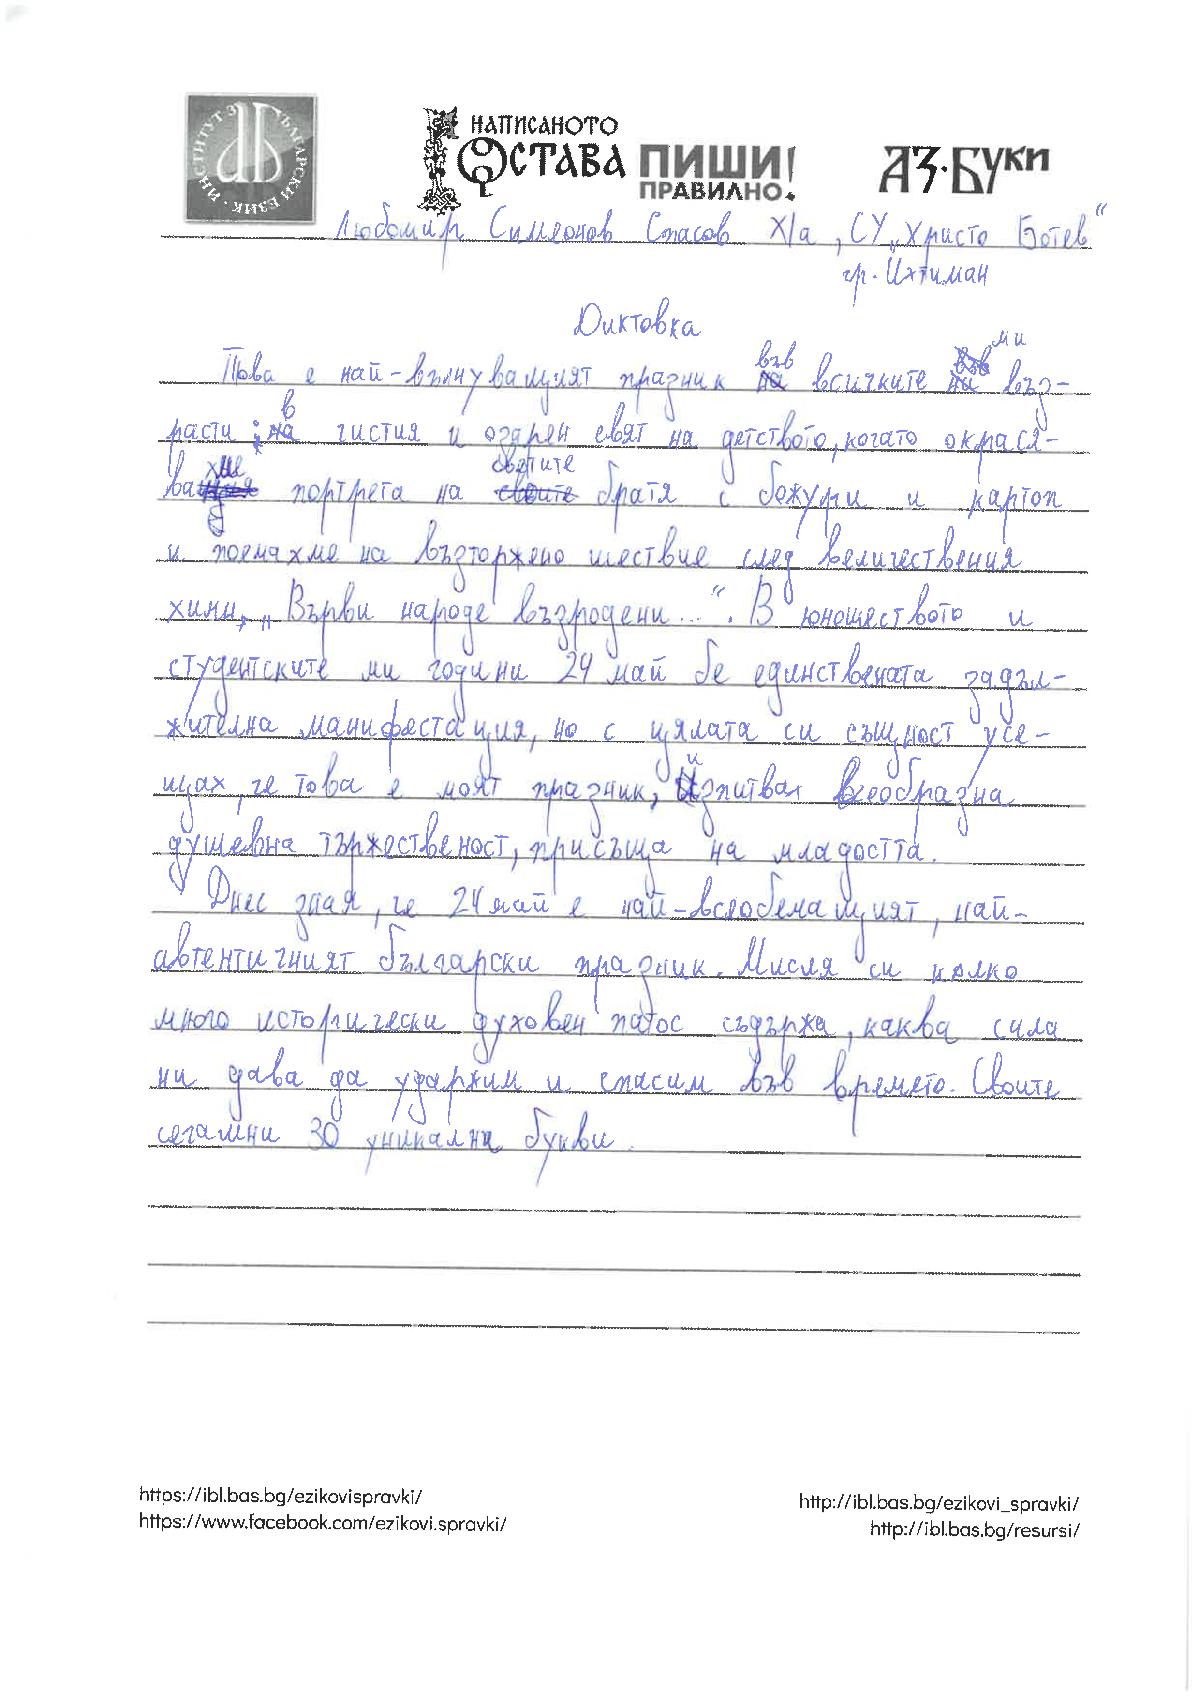 ИНСТИТУТ ЗА БЪЛГАРСКИ ЕЗИК
НАПИСАНОТО
ОСТАВА ПИШИ!
ПРАВИЛНО.
АЗ·БУКИ
Любомир Симеонов Спасов XIа, СУ „Христо Ботев“
гр. Ихтиман
Диктовка
Това е най-вълнуващият празник във всичките ми въз-
расти: в чистия и озарен свят на детството, когато окрася-
вахме портрета на светите братя с божури и картон
и поемахме на възторжено шествие след величествения
химн, „Върви народе възродени...“. В юношеството и
студентските ми години 24 май бе единствената задъл-
жителна манифестация, но с цялата си същност усе-
щах, че това е моят празник, изпитвах всеобразна
душевна тържественост, присъща на младостта.
Днес зная, че 24 май е най-всеобемащият, най-
автентичният български празник. Мисля си колко
много исторически духовен патос съдържа, каква сила
ни дава да удържим и спасим във времето. Своите
сегашни 30 уникални букви.
https://ibl.bas.bg/ezikovispravki/
https://www.facebook.com/ezikovi.spravki/
http://ibl.bas.bg/ezikovi_spravki/
http://ibl.bas.bg/resursi/